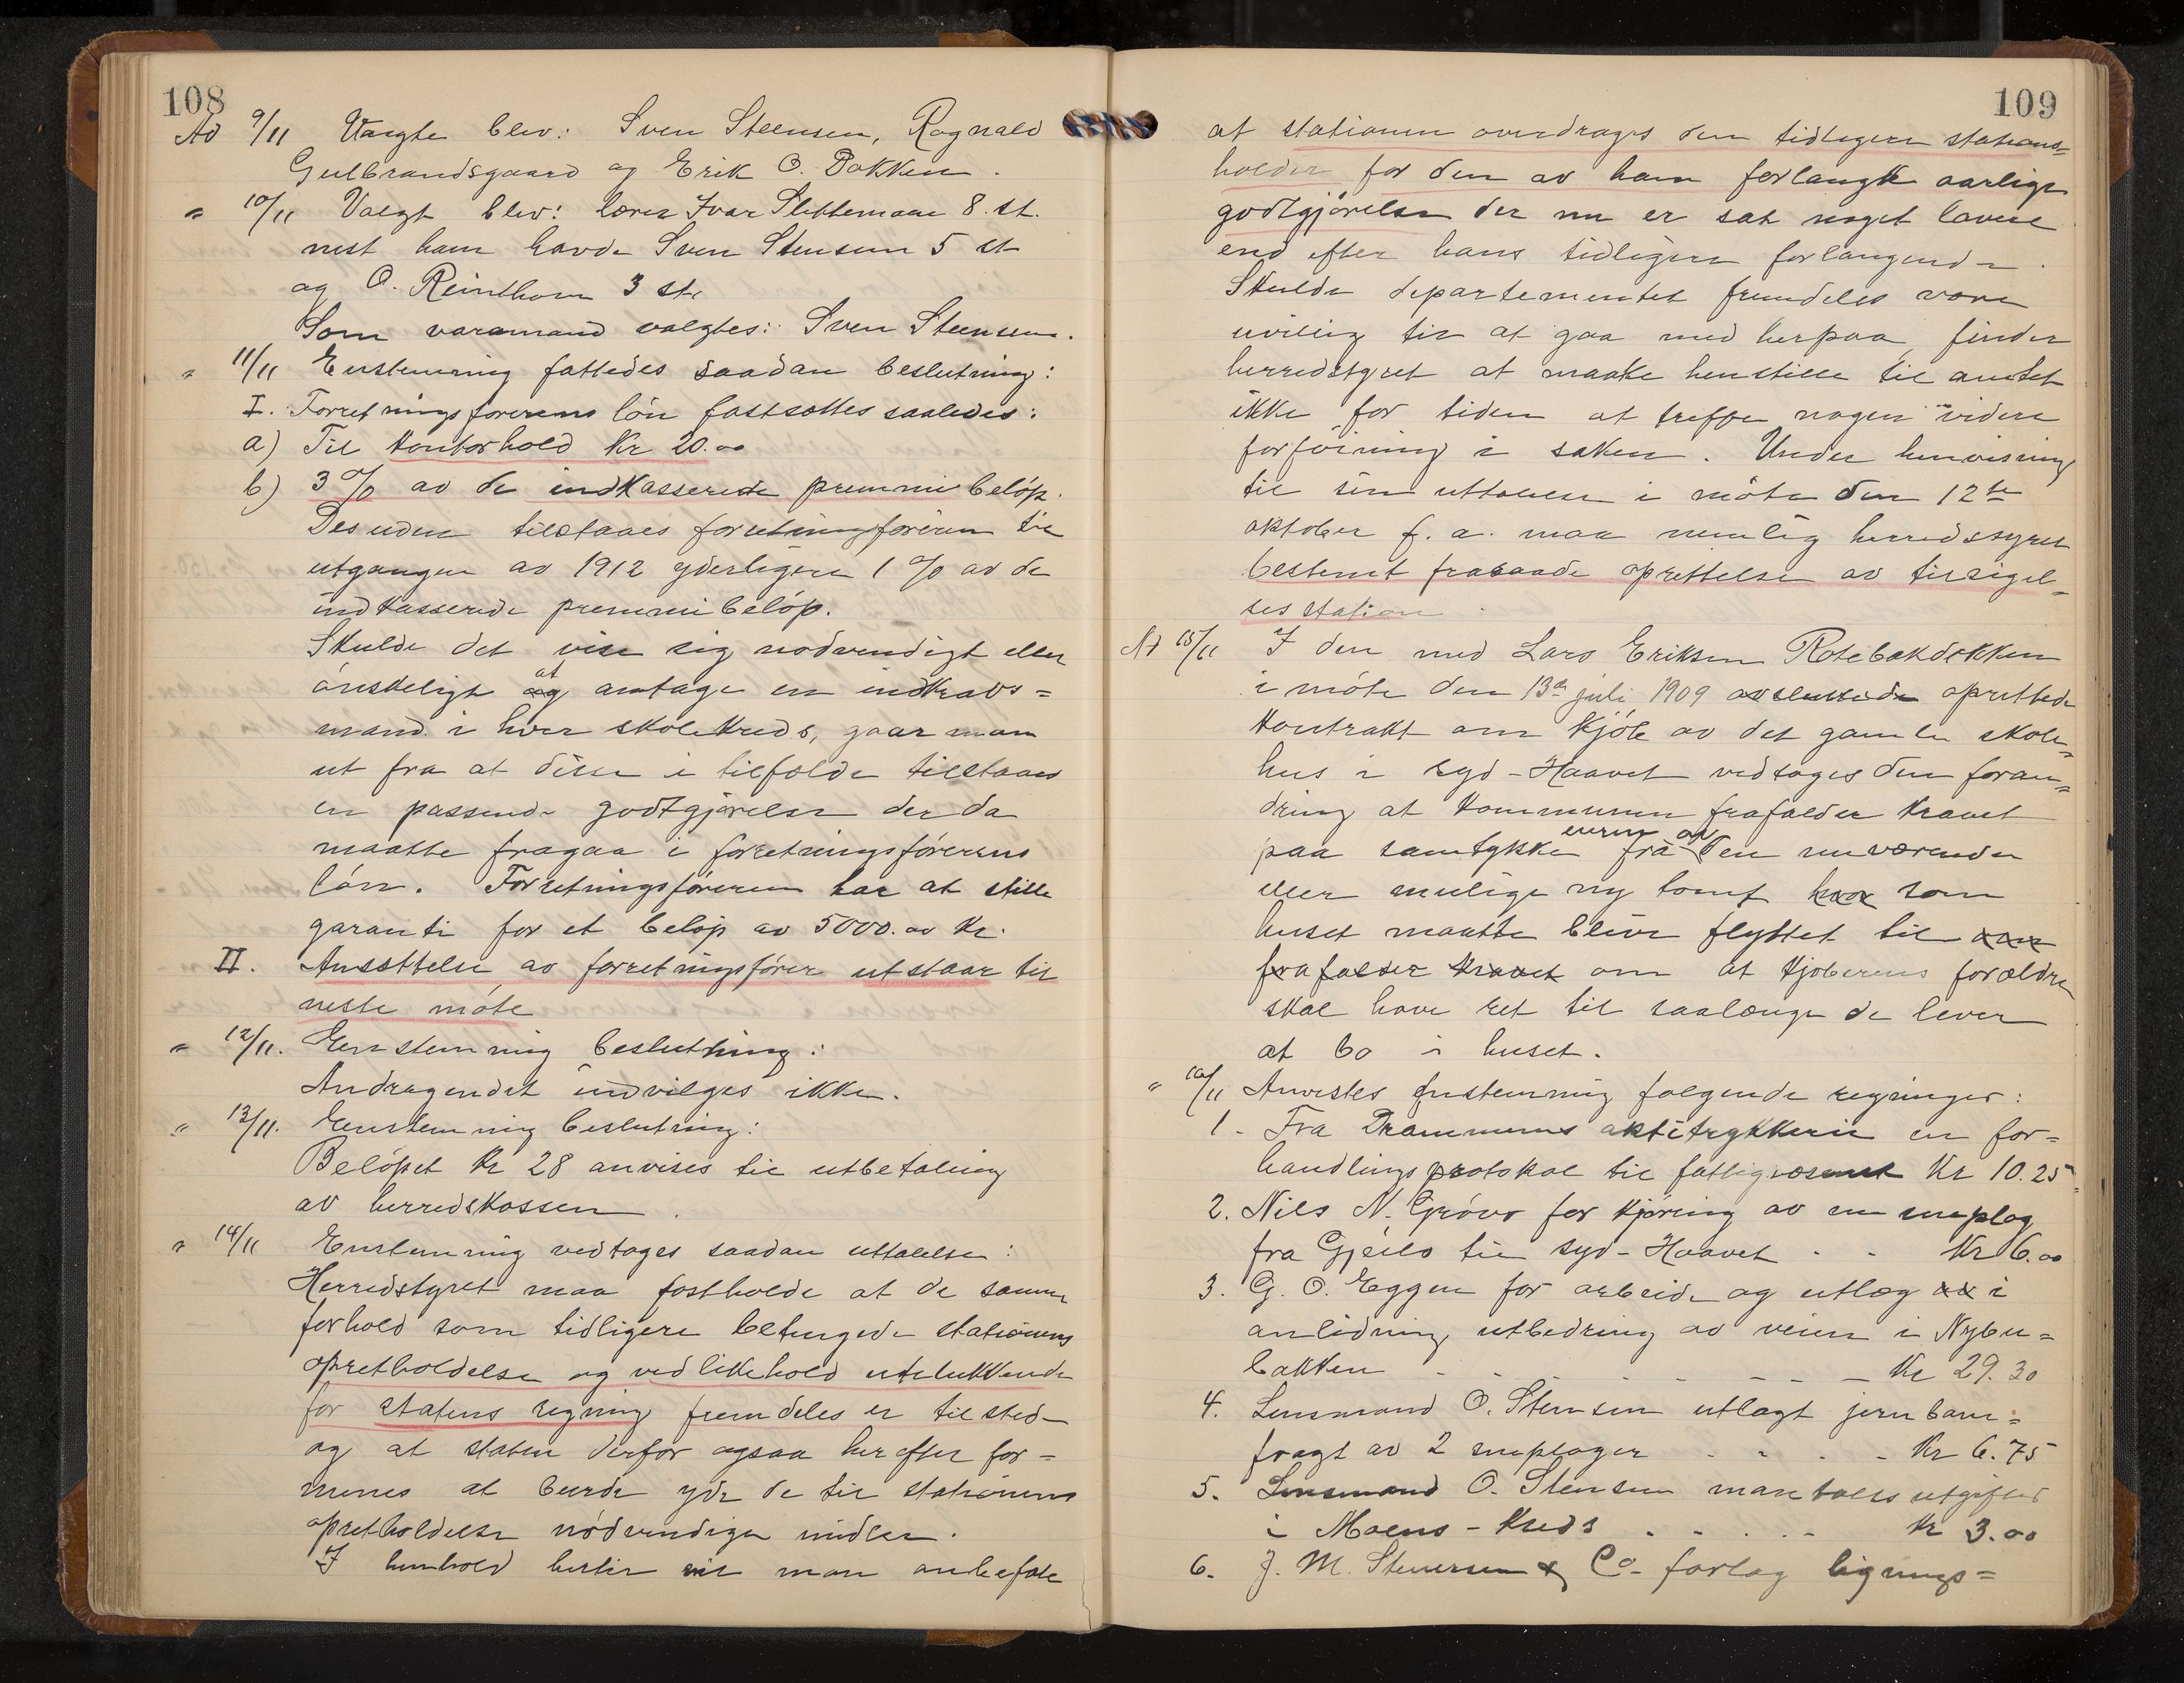 108
Ad 9/11 Valgte blev: Sven Steensen, Ragnald
Gulbrandsgaard og Erik O. Bakken.
" 10/11 Valgt blev: lærer Ivar Slettemoen 8 st.
nest ham havde Sven Stensen 5 st
og O. Reinthon 3 st.
Som varamand valgtes: Sven Steensen.
" 11/11 Enstemmig fattedes saadan beslutning:
I. Forretningsførerens løn fastsættes saaledes:
a) Til kontorhold Kr 20.00
b) 3 % av de indkasserede premmiebeløp.
Desuden tilstaaes forretningsføreren til
utgangen av 1912 yderligere 1 % av de
indkasserede premmiebeløp.
Skulde det vise sig nødvendigt eller
ønskeligt at antage en indkrævs=
mand i hver skolekreds, gaar man
ut fra at disse i tilfælde tilstaaes
en passende godtgjørelse der da
maatte fragaa i forretningsførerens
løn. Forretningsføreren har at stille
garanti for et beløp av 5000.00 Kr.
II. Ansættelse av forretningsfører utstaar til
neste møte
" 12/11. Enstemmig beslutning:
Andragendet indvilges ikke.
" 13/11. Enstemmig beslutning:
Beløpet Kr 28 anvises til utbetaling
av herredskassen.
" 14/11 Enstemmig vedtages saadan uttalelse:
Herredstyret maa fastholde at de samme
forhold som tidligere betingede stationens
opretholdelse og vedlikehold utelukkende
for statens regning fremdeles er tilsted
og at staten derfor ogsaa herefter for=
menes at burde yde de til stationens
opretholdelse nødvendige midler.
I henhold hertil vil man anbefale
109
at stationen overdrages den tidligere stations=
holder for den av ham forlangte aarlige
godtgjørelse der nu er sat noget lavere
end efter hans tidligere forlangende.
Skulde departementet fremdeles være
uvillig til at gaa med herpaa, finder
herredstyret at maatte henstille til amtet
ikke for tiden at treffe nogen videre
forføining i saken. Under henvisning
til sin uttalelse i møte den 12te
oktober f. a. maa nemlig herredsstyret
bestemt fraraade oprettelse av tilsigel=
ses station.
Ad 15/11 I den med Lars Eriksen Rotebakdokken
i møte den 13de juli 1909 avsluttede oprettede
kontrakt om kjøb av det gamle skole=
hus i Syd-Haavet vedtages den foran=
dring at kommunen frafalder kravet
paa samtykke fra eieren av den nuværende
eller mulige ny tomt hvor som
huset maatte blive flyttet til
frafalder kravet om at kjøberens forældre
skal have ret til saalænge de lever
at bo i huset.
" 16/11 Anvistes enstemmig følgende regninger:
1. Fra Drammens aktietrykkeri en for=
handlingsprotokol til fattigvæsenet Kr 10.25
2. Nils N. Grøvo for kjøring av en sneplog
fra Gjeilo til Syd-Haavet - - Kr 6.00
3. G. O. Eggen for arbeide og utlæg i
anledning utbedring av veien i Nybu=
bakken - - - - - - - - Kr 29.30
4. Lensmand O. Stensen utlagt jernbane=
fragt av 2 sneploger - - - - Kr 6.75
5. Lensmand O. Stensen manetalls utgifter
i Moens-Kreds - - - - Kr 3.00
6. J. M. Stenersen & Co- forlag lignings=